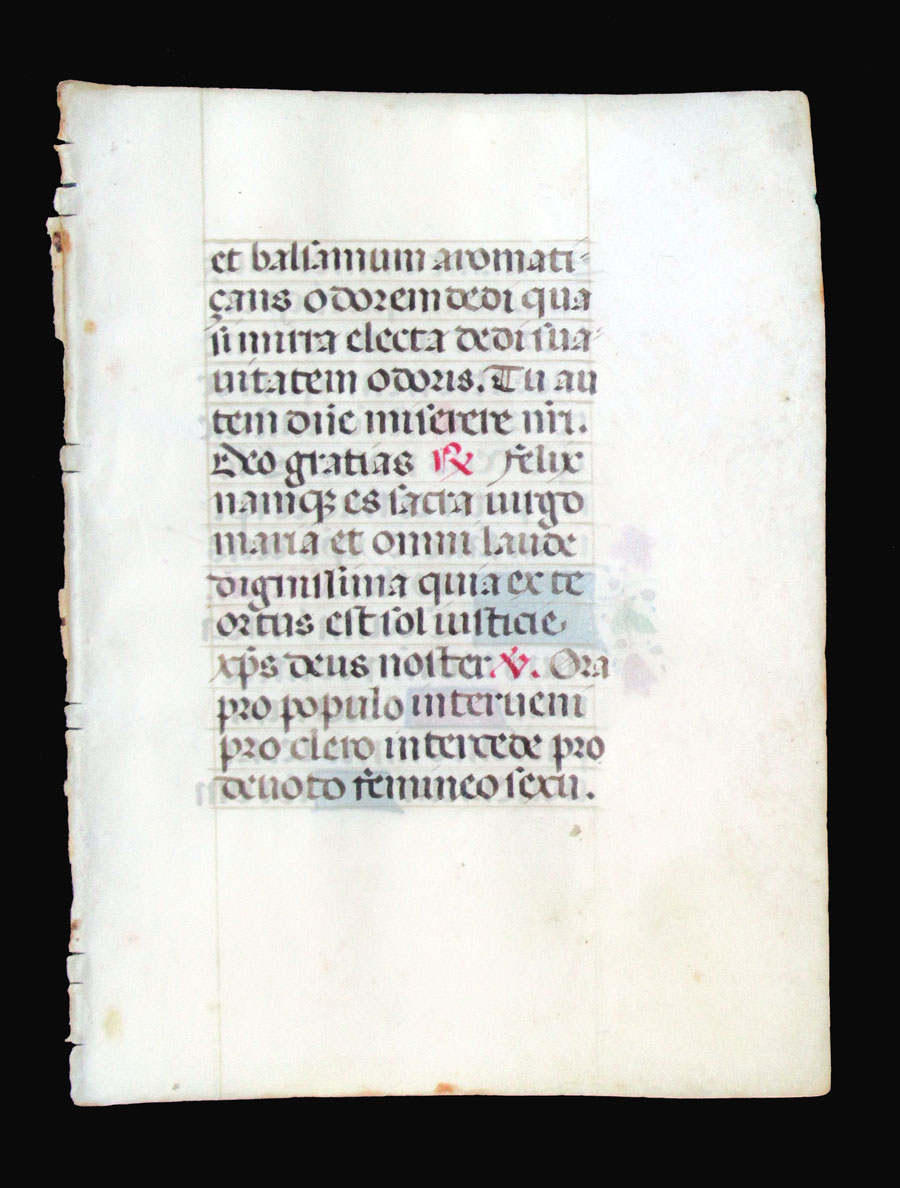 et balsamum aromati-
çans odorem dedi qua
si mirra electa dedi sua-
uitatem odoris. Tu au
tem dn̄e miserere nr̄i.
Deo gratias ℟ felix
namqꝫ es sacra uirgo
maria et omni laude
dignissima quia ex te
ortus est sol iusticie
xp̄s deus noster ℣. Ora
pro populo interueni
pro clero intercede pro
deuoto femineo sexu.